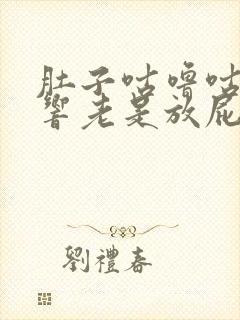 肚子咕噜咕
響老是放屁
劉禮春